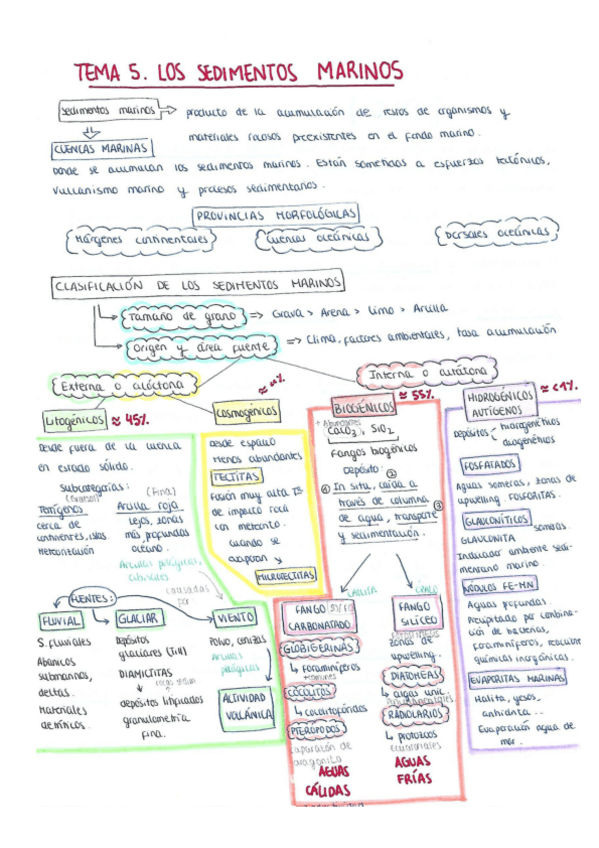 TEMA 5. LOS SEDIMENTOS MARINOS
Sedimentos marinos producto de la acumulación de restos de organismos y
materiales rocosos preexistentes en el fondo marino.
CUENCAS MARINAS
Donde se acumulan los sedimentos marinos. Están sometidas a esfuerzos tectónicos,
vulcanismo marino y procesos sedimentarios.
PROVINCIAS MORFOLÓGICAS
Márgenes continentales Cuencas oceánicas Dorsales oceánicas
CLASIFICACIÓN DE LOS SEDIMENTOS MARINOS
Tamaño de grano => Grava > Arena > Limo > Arcilla
Origen y área fuente => Clima, factores ambientales, tasa acumulación
Externa o alóctona
Interna o autóctona
Litogénicos ≈ 45%.
Desde fuera de la cuenca
en estado sólido.
Subcategorías:
Terrígenos
(Gruesa)
cerca de
continentes, islas.
Meteorización
(Fina)
Arcilla roja
lejos, zonas
más profundas
océano.
Arcillas pelágicas,
causadas
por
FUENTES:
FLUVIAL
S. fluviales
Abanicos
submarinos,
deltas.
Materiales
detríticos.
GLACIAR
Depósitos
glaciares (Till)
DIAMICTITAS
depósitos litificados
granulometría
fina.
VIENTO
Polvo, cenizas
Arcillas
pelágicas
ACTIVIDAD
VOLCÁNICA
Cosmogénicos
Desde espacio
Menos abundantes
TECTITAS
Fusión muy alta Tª
de impacto roca
con meteorito.
cuando se
evaporan
MICROTECTITAS
BIOGÉNICOS ≈ 55%.
+ Abundantes
CaCO3, SiO2
Fangos biogénicos
Depósito: ②
① In situ, caída a
través de columna
de agua, transporte ③
y sedimentación.
CALCITA
FANGO
CARBONATADO
GLOBIGERINAS
↳ foraminíferos
COCOLITOS
↳ cocolitofóridos
PTERÓPODOS
Caparazón de
aragonito
AGUAS
CÁLIDAS
ÓPALO
FANGO
SILÍCEO
zonas de
upwelling.
DIATOMEAS
↳ algas unic.
RADIOLARIOS
↳ protozoos
Ecuatoriales
AGUAS
FRÍAS
HIDROGÉNICOS ≈ <1%.
AUTÍGENOS
Depósitos halogenéticos
diagenéticos
FOSFATADOS
Aguas someras, zonas de
upwelling. FOSFORITAS.
GLAUCONÍTICOS someras
GLAUCONITA
Indicador ambiente sedi-
mentario marino.
NÓDULOS FE-MN
Aguas profundas.
Precipitado por combina-
ción de bacterias,
foraminíferos, reacciones
químicas inorgánicas.
EVAPORITAS MARINAS
Halita, yesos,
anhidrita...
Evaporación agua de
mar.